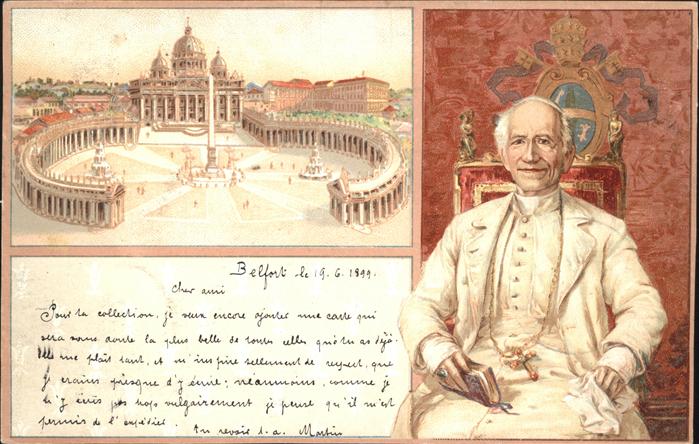 Belfort le 19. 6. 1899.
Cher ami
Pour ta collection, je veux encore ajouter une carte qui
sera sans doute la plus belle de toutes celles que tu as déjà.
Elle me plaît tant, et m'inspire tellement de respect, que
je crains presque d'y écrire; néanmoins, comme je
n'y écris pas trop vulgairement je pense qu'il m'est
permis de l'expédier.
Au revoir t. a. Martin